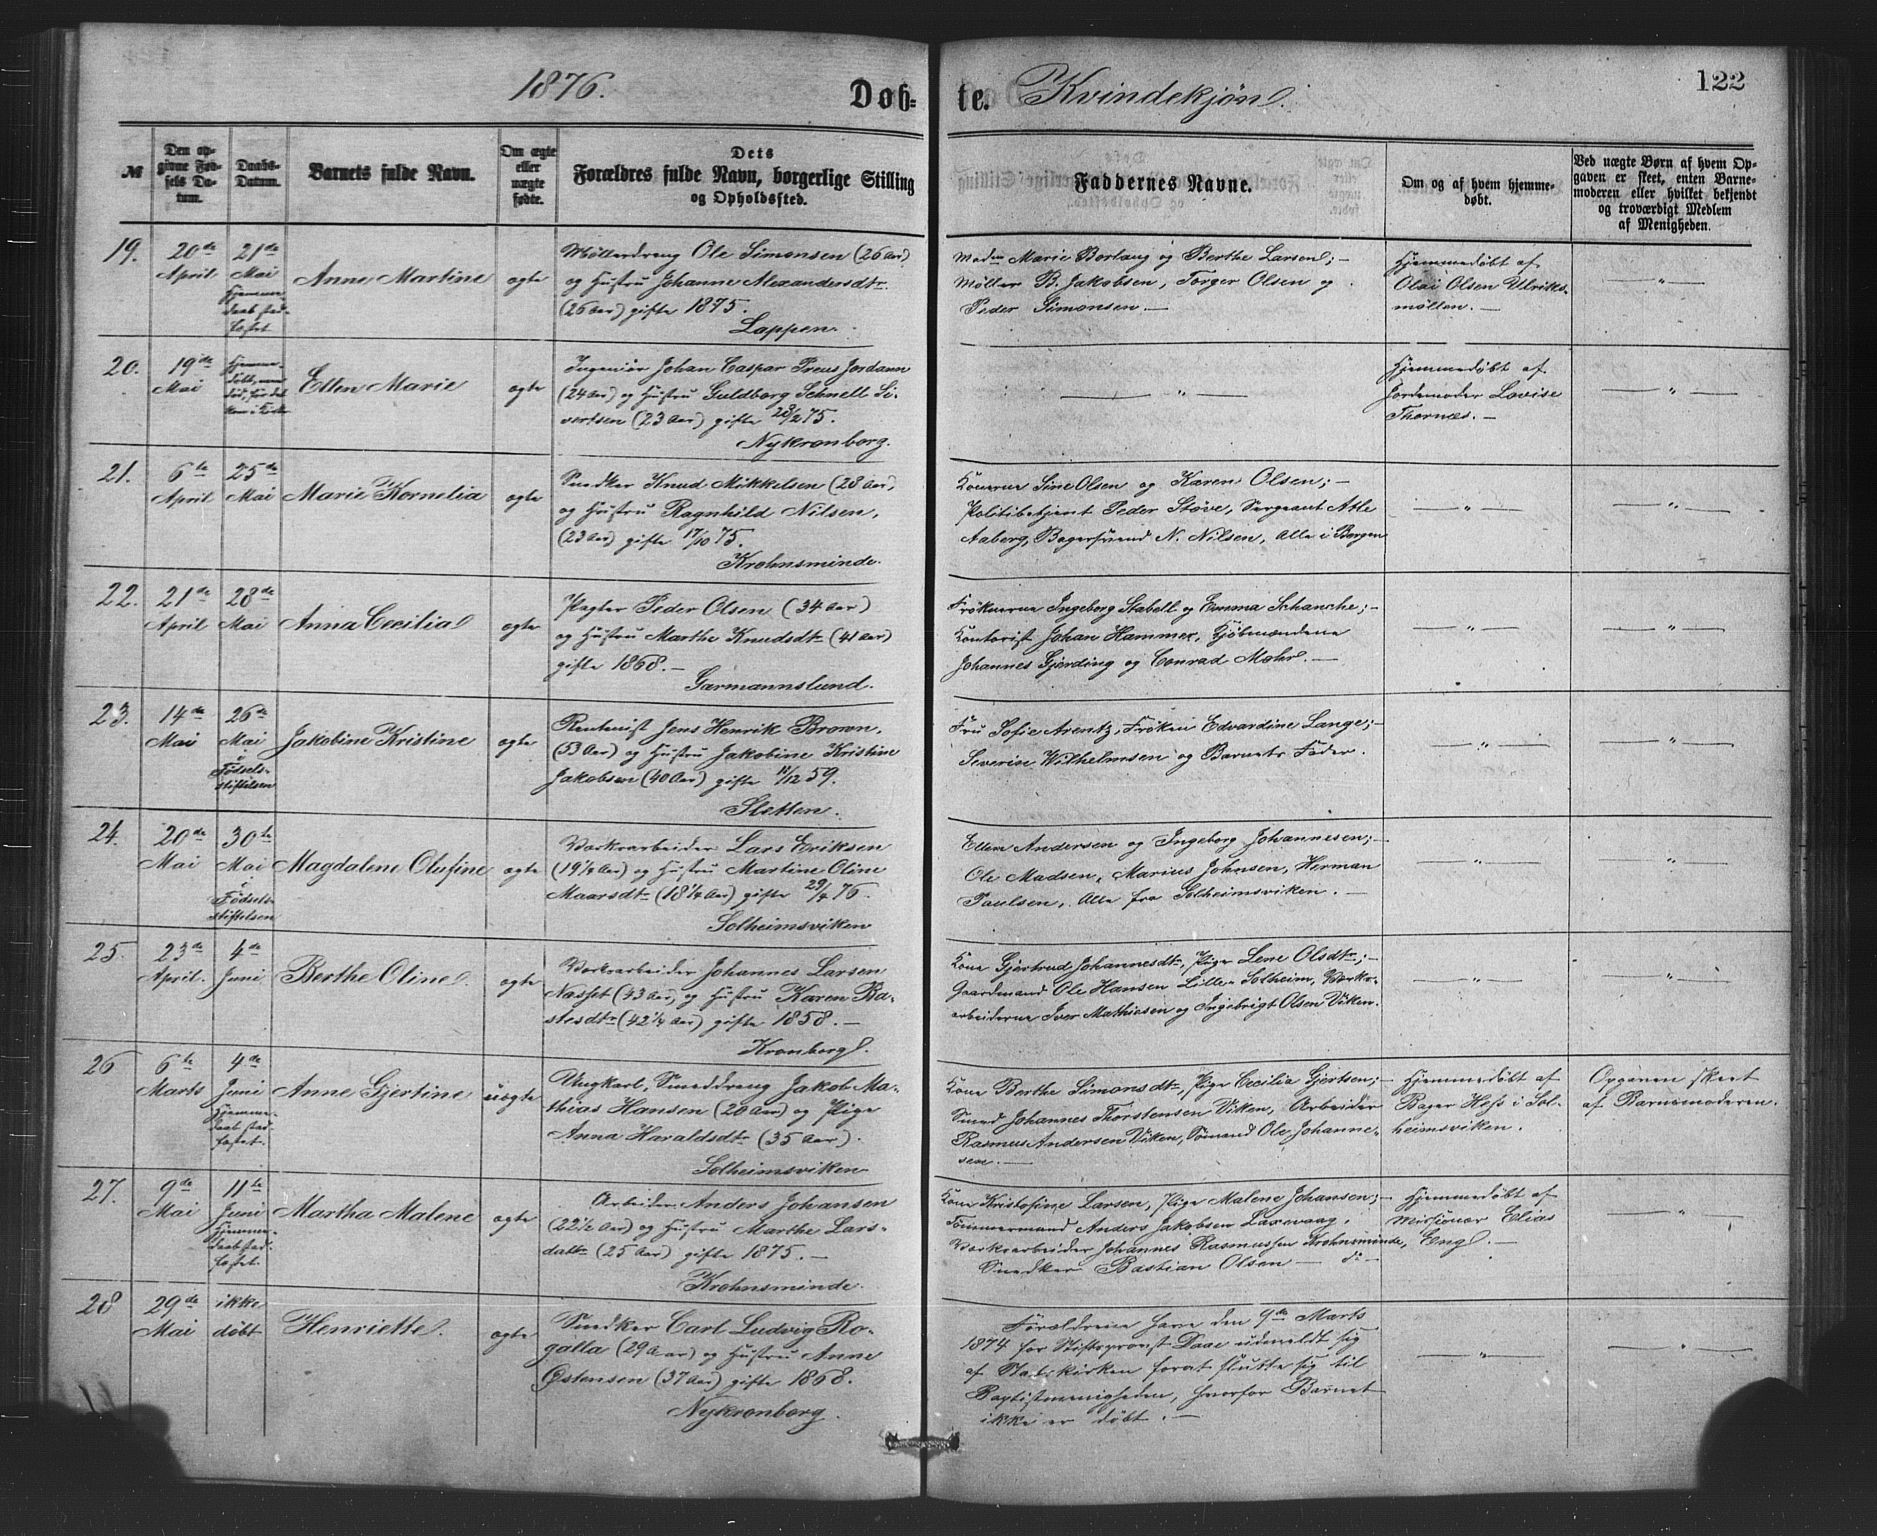 1876.
Døb=
te. Kvindekjøn.
122
№
Den op-
givne Fød-
sels Da-
tum.
Daabs-
Datum.
Barnets fulde Navn.
Om ægte
eller
uægte
fødte.
Dets
Forældres fulde Navn, borgerlige Stilling
og Opholdssted.
Faddernes Navne.
Om og af hvem hjemme-
døbt.
Ved uægte Børn af hvem Op-
gaven er skeet, enten Barne-
moderen eller hvilket bekjendt
og troværdigt Medlem
af Menigheden.
19.
20de
April
21de
Mai
Hjemme-
daab stad-
fæstet
Anne Martine
ægte
Møllerdreng Ole Simonsen (26 Aar)
og Hustru Johanne Alexandersdtr
(26 Aar) gifte 1875.
Lappen.
Madm Marie Borlaug og Berthe Larsen; —
Møller B. Jakobsen, Torger Olsen og
Peder Simonsen. —
Hjemmedøbt af
Olai Olsen Ulriks-
møllen. —
— " —
20.
19de
Mai
Hjemme-
døbt, men
død, før det
kom i Kirke
Ellen Marie
ægte
Ingeniør Johan Caspar Preus Jordann
(24 Aar) og Hustru Guldborg Schnell Si-
vertsen (23 Aar) gifte 28/2 75.
Nykronborg.
— " —
Hjemmedøbt af
Jordemoder Lovise
Thornæs. —
— " —
21.
6te
April
25de
Mai
Marie Kornelia
ægte
Snedker Knud Mikkelsen (28 Aar,
og Hustru Ragnhild Nilsen,
(23 Aar) gifte 17/10 75.
Krohnsminde.
Konerne Sine Olsen og Karen Olsen; —
Politibetjent Peder Støve, Sergeant Atle
Aaberg, Bagersvend N. Nilsen, Alle i Bergen
— " —
— " —
22.
21de
April
28de
Mai
Anna Cecilia
ægte
Pagter Peder Olsen (34 Aar)
og Hustru Marthe Knudsdtr (41 Aar)
gifte 1868. —
Garmannslund.
Frøknerne Ingeborg Stabell og Emma Schanche; —
Kontorist Johan Hammer, Kjøbmændene
Johannes Gjerding og Conrad Mohr. —
— " —
— " —
23.
14de
Mai
26de
Mai
i
Fødsels-
stiftelsen
Jakobine Kristine
ægte
Rentenist Jens Henrik Brown,
(53 Aar) og Hustru Jakobine Kristine
Jakobsen (40 Aar) gifte 11/12 59.
Sletten.
Fru Sofie Arentz, Frøken Edvardine Lange; —
Severin Wilhelmsen og Barnets Fader.
— " —
— " —
24.
20de
Mai
30te
Mai
i
Fødsels-
stiftelsen
Magdalene Olufine
ægte
Værkarbeider Lars Eriksen
(19 1/4 Aar) og Hustru Martine Oline
Maarsdtr (18 1/4 Aar) gifte 29/4 76.
Solheimsviken
Ellen Andersen og Ingeborg Johannesen; —
Ole Madsen, Marius Johnsen, Herman
Paulsen, Alle fra Solheimsviken. —
— " —
— " —
25.
23de
April.
4de
Juni
Berthe Oline
ægte
Værkarbeider Johannes Larsen
Nasset (43 Aar) og Hustru Karen Ba-
stesdtr (42 1/4 Aar) gifte 1858. —
Kronborg.
Kone Gjertrud Johannesdtr, Pige Lene Olsdtr; —
Gaardmand Ole Hansen Lille-Solheim, Værks-
arbeiderne Iver Mathiesen og Ingebrigt Olsen Viken.
— " —
— " —
26
6te
Marts
4de
Juni
Hjemme-
daab stad-
fæstet.
Anne Gjertine
uægte
Ungkarl, Smeddreng Jakob Ma-
thias Hansen (20 Aar) og Pige
Anna Haraldsdtr (35 Aar).
Solheimsviken
Kone Berthe Simonsdtr, Pige Cecilia Gjertsen; —
Smed Johannes Thorstensen Viken, Arbeider
Rasmus Andersen Viken, Sømand Ole Johanne-
sen. —
Hjemmedøbt af
Bager Hess i Sol-
heimsviken.
Opgaven skeet
af Barnemoderen.
27.
9de
Mai
11te
Juni
Hjemme-
daab stad-
fæstet.
Martha Malene
ægte
Arbeider Anders Johansen
(22 1/2 Aar) og Hustru Marthe Lars-
datter (25 Aar) gifte 1875. —
Krohnsminde.
Kone Kristofine Larsen, Pige Malene Johansen; —
Tømmermand Anders Jakobsen Laxevaag,
Værkarbeider Johannes Rasmussen Krohnsminde,
Snedker Bastian Olsen — do —
Hjemmedøbt af
Missionær Elias
Eng. —
— " —
28
29de
Mai
ikke
døbt
Henriette.
ægte
Snedker Carl Ludvig Ro-
galla (29 Aar) og Hustru Anne
Østensen (37 Aar) gifte 1868.
Nykronborg.
Forældrene have den 9de Marts
1874 for Stiftsprovst Daae udmeldt sig
af Statskirken forat slutte sig til
Baptistmenigheden, hvorfor Barnet
ikke er døbt. —
— " —
— " —